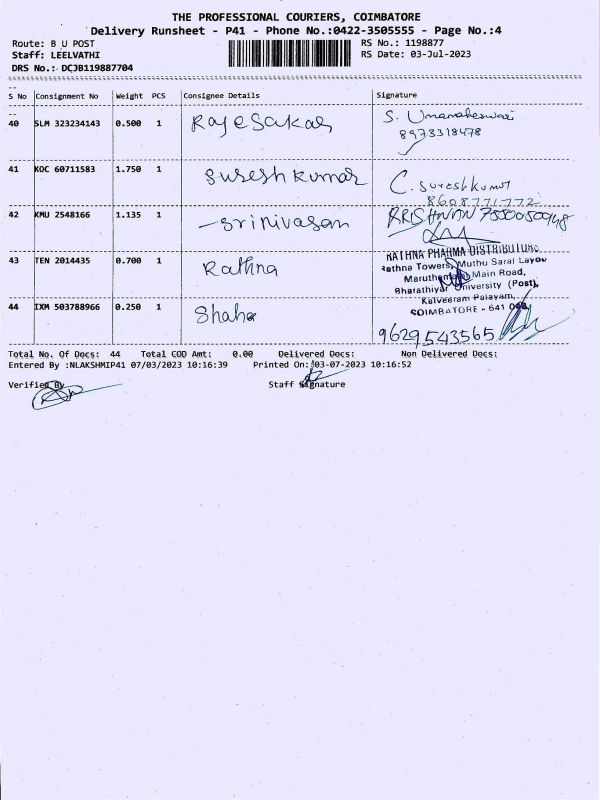 THE PROFESSIONAL COURIERS, COIMBATORE
Delivery Runsheet - P41 - Phone No.:0422-3505555 - Page No.:4
Route: B U POST RS No.: 1198877
Staff: LEELVATHI RS Date: 03-Jul-2023
DRS No.: DCJB119887704
S No Consignment No Weight PCS Consignee Details Signature
40 SLM 323234143 0.500 1 Rajesakar S. Umamaheswari
8973318478
41 KOC 60711583 1.750 1 Sureshkumar C. Sureshkumar
8608771772
42 KMU 2548166 1.135 1 Srinivasan
43 TEN 2014435 0.700 1 Rathna RATHNA PHARMA DISTRIBUTORS
Rathna Towers, Muthu Saral Layou
Maruthamalai Main Road,
Bharathiyar University (Post),
Kalveeram Palayam,
COIMBATORE - 641 046
44 IXM 503788966 0.250 1
9629543565
Total No. Of Docs: 44 Total COD Amt: 0.00 Delivered Docs: Non Delivered Docs:
Entered By :NLAKSHMIP41 07/03/2023 10:16:39 Printed On: 03-07-2023 10:16:52
Verified By Staff Signature